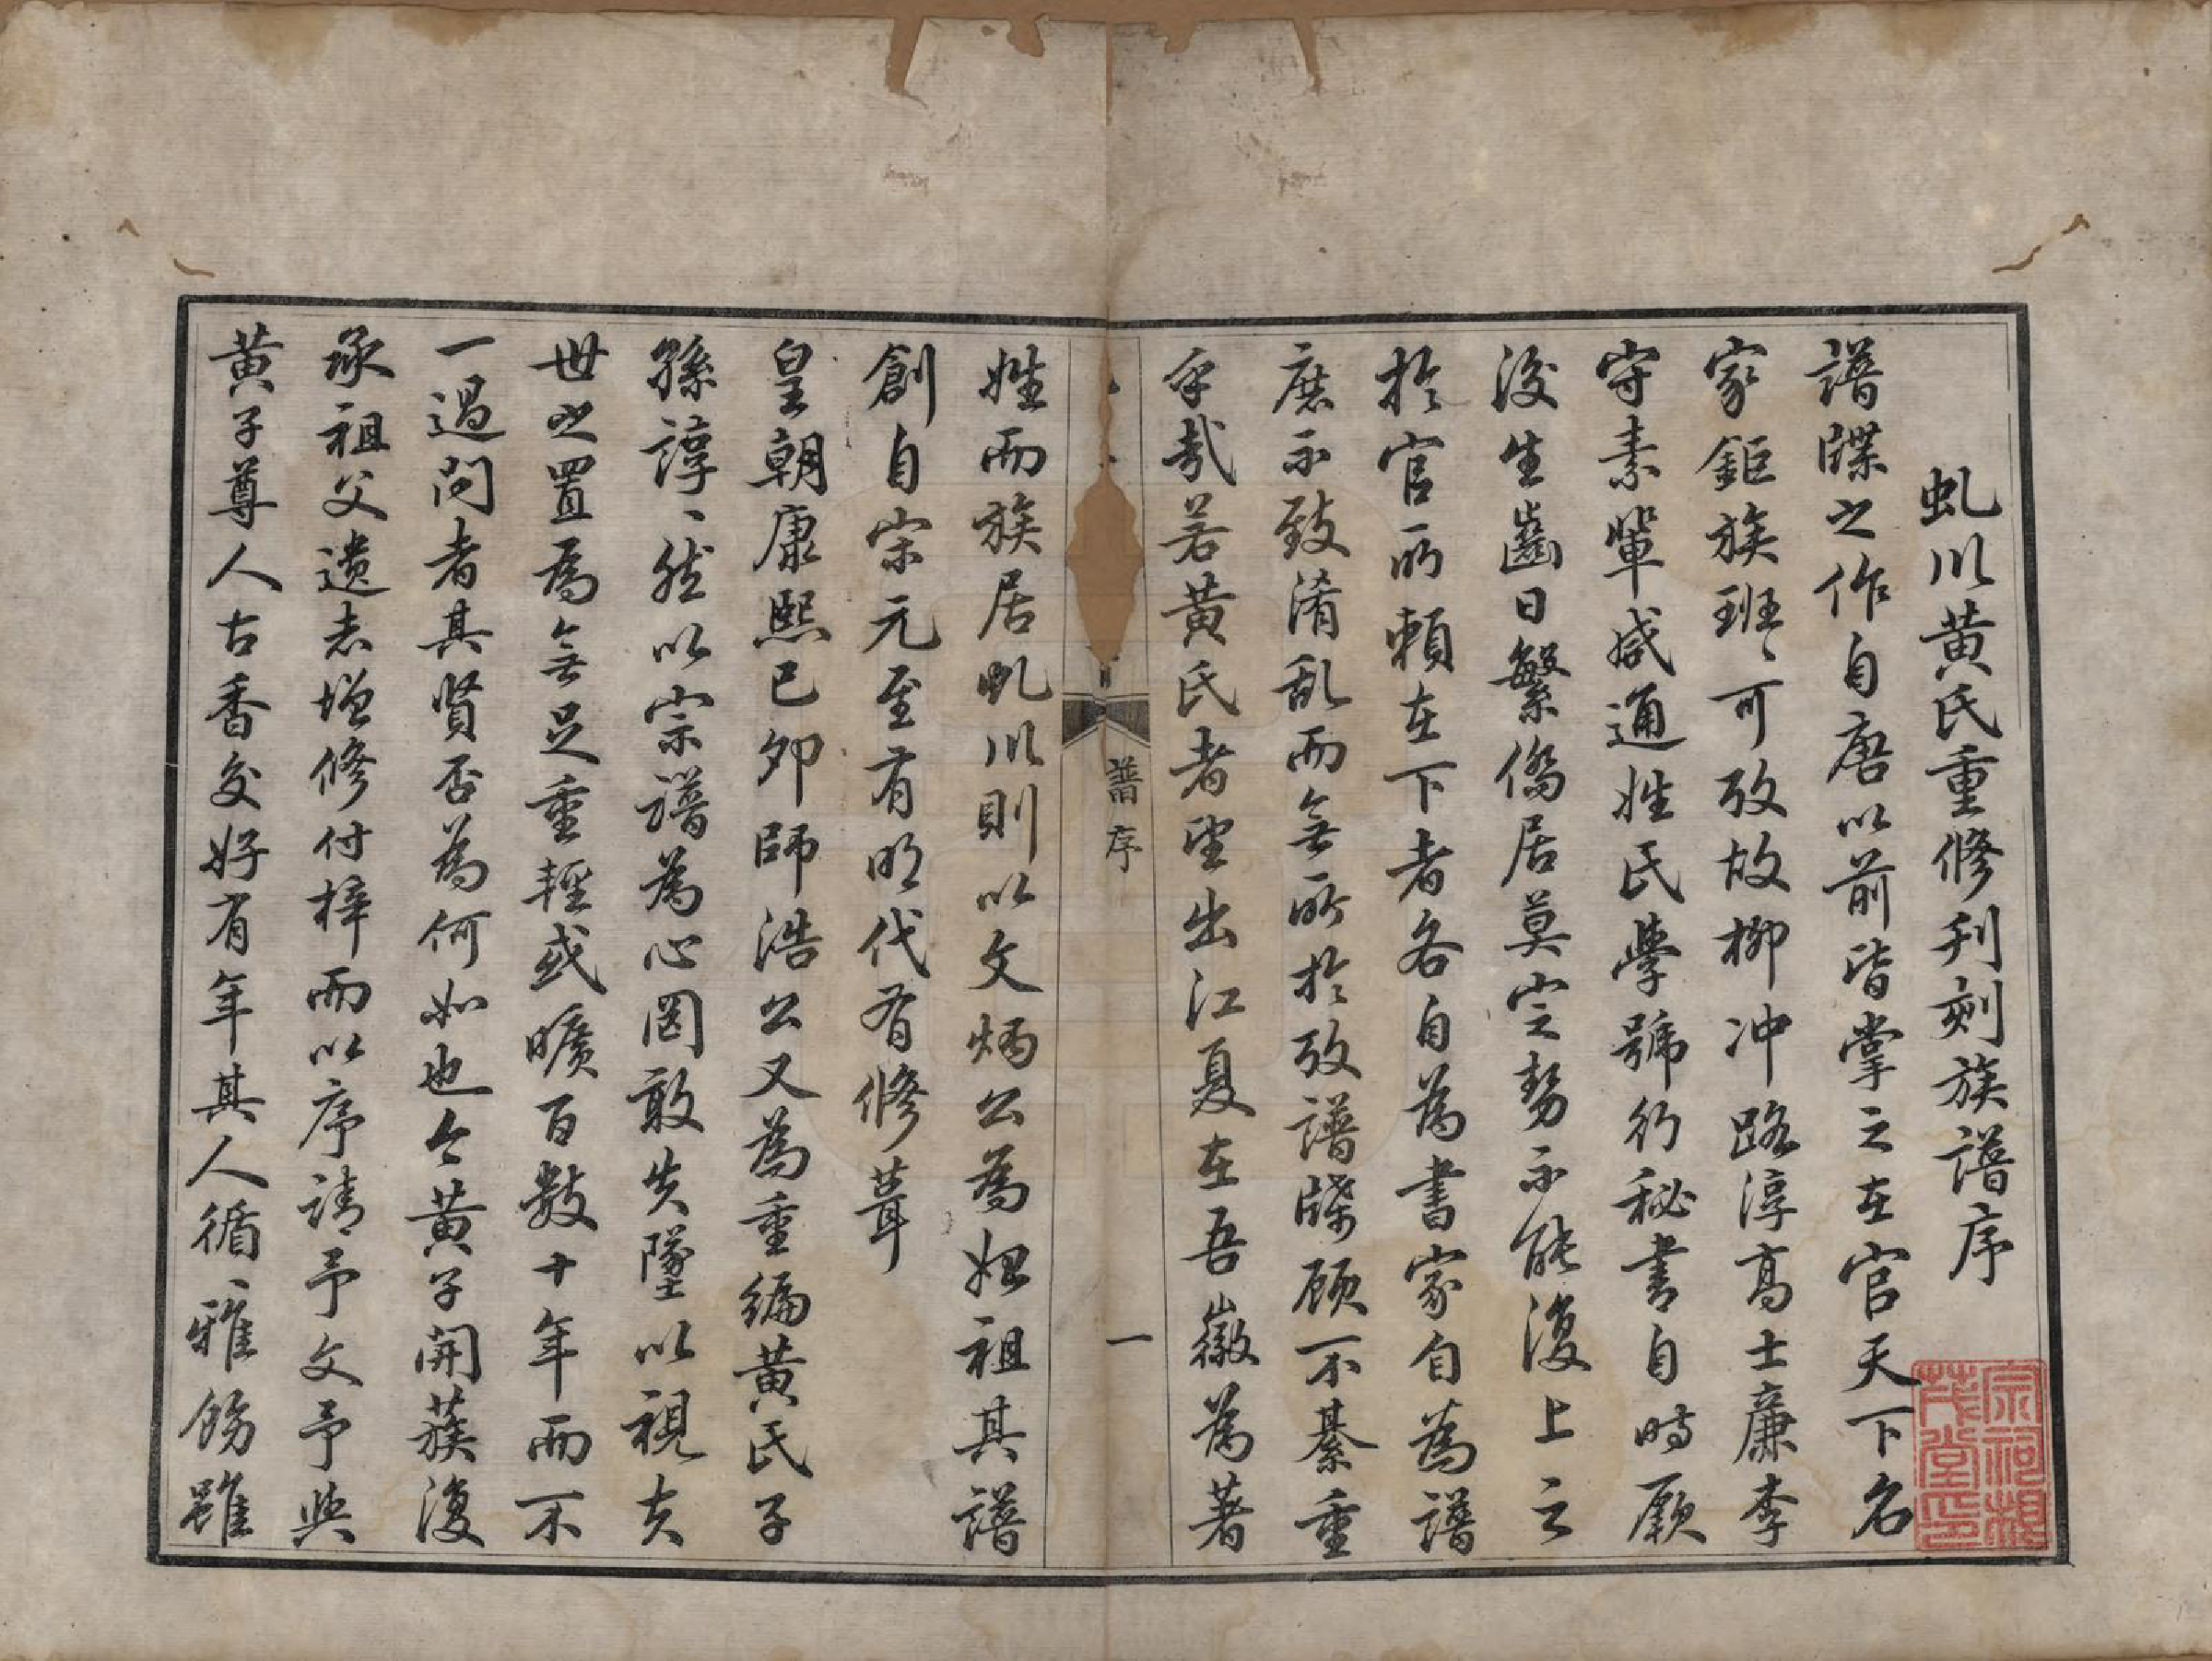 虬川黃氏重修刋刻族譜序
譜牒之作自唐以前皆掌之在官天下名
家鉅族班〻可攷故柳冲路淳高士廉李
守素輩咸通姓氏學號行秘書自時厥
後生齒日繁僑居莫定勢不能復上之
於官所賴在下者各自為書家自為譜
庶不致淆亂而無所於攷譜牒顧不綦重
乎哉若黃氏者望出江夏在吾徽為著
姓而族居虬川則以文炳公為始祖其譜
創自宋元至有明代有修葺
皇朝康熙己卯師浩公又為重編黃氏子
孫諄〻然以宗譜為心罔敢失墜以視夫
世之置為無足重輕或曠百數十年而不
一過問者其賢否為何如也今黃子開蔟復
承祖父遺志增修付梓而以序請予文予與
黃子尊人古香交好有年其人循〻雅飭雖
譜序
一
宗祠根
茂堂印